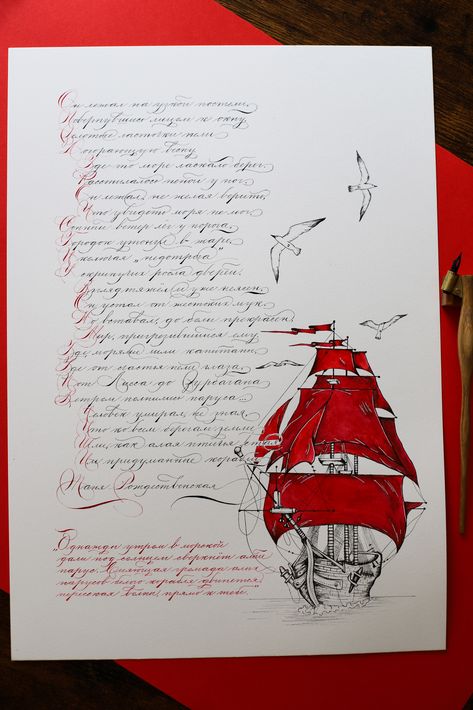 Он лежал на узкой постели,
Повернувшись лицом к окну.
Золотые ласточки пели
Догорающую весну.
Где-то море ласкало берег,
Рассыпалось пеной у ног.
Он лежал, не желая верить,
Что увидеть моря не мог.
Сонный ветер лег у порога,
Городок утонул в жаре,
И колючая „недотрога“
У скрипучих росла дверей.
Взгляд тяжёл и уже неясен...
Он устал от жестоких мук.
Но вставал, до боли прекрасен,
Мир, пригрезившийся ему,
Где морями шли капитаны,
Где от счастья пели глаза,
И от Лисса до Зурбагана
Ветром полнились паруса...
Человек умирал, не зная,
Что ко всем берегам земли
Шли, как алая птичья стая,
Им придуманные корабли.
Таня Рождественская
„Однажды утром в морской
дали под солнцем сверкнёт алый
парус. Сияющая громада алых
парусов белого корабля двинется,
пересекая волны, прямо к тебе.“